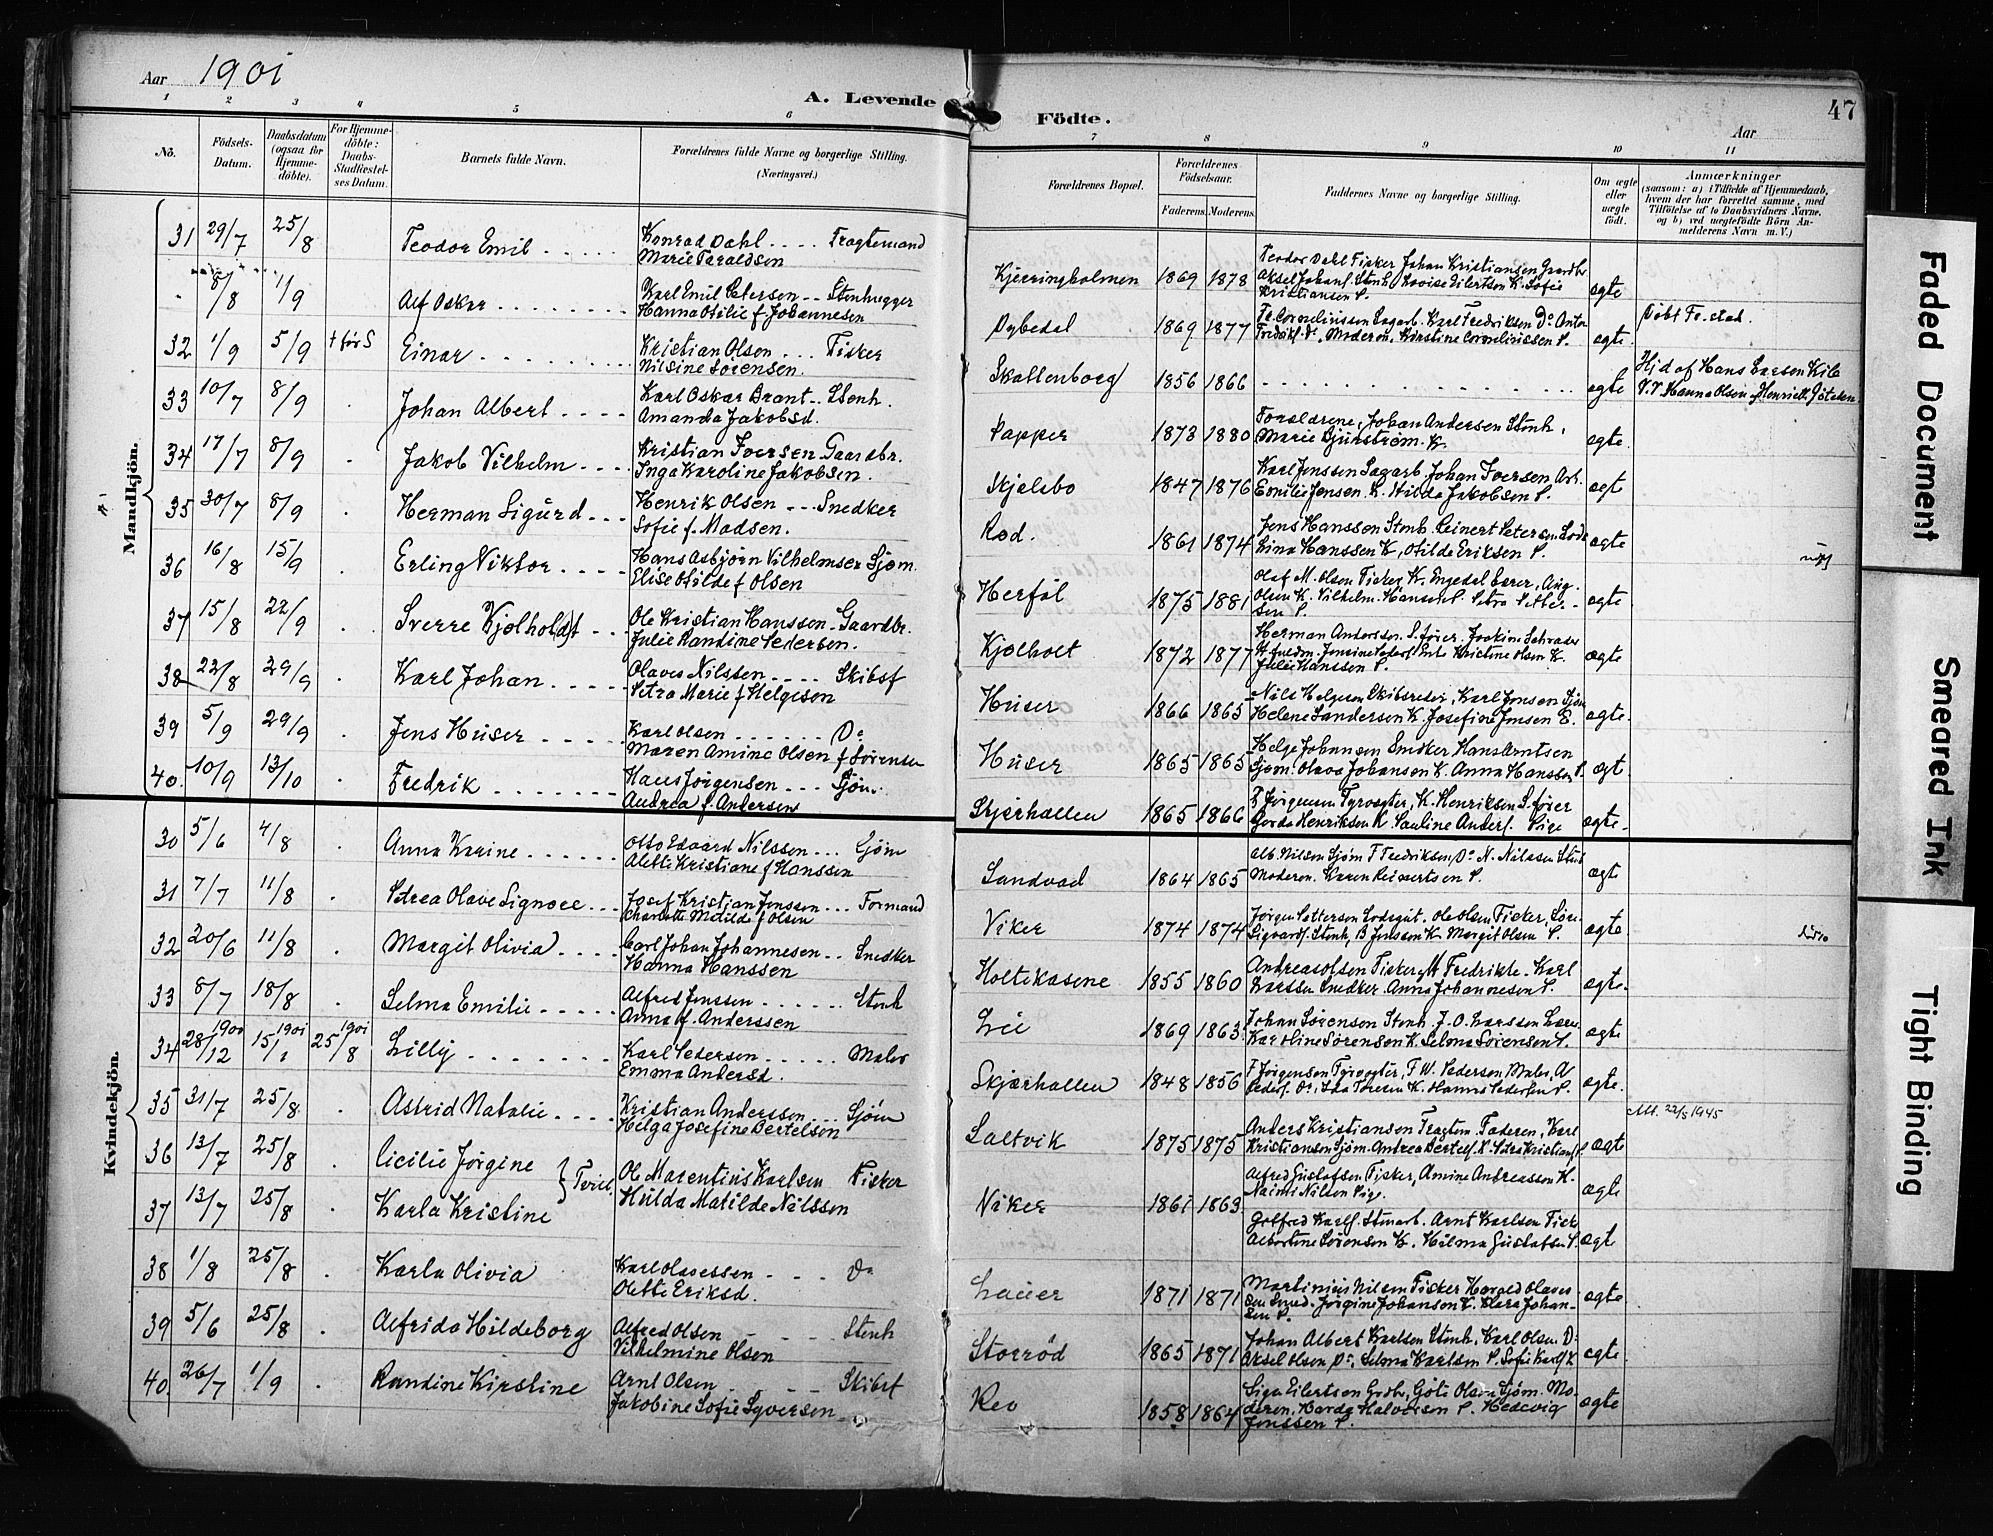 Aar 1901
A. Levende
Födte.
Aar
47
1 2 3 4 5 6 7 8 9 10 11
Nô. Födsels-Datum. Daabsdatum (ogsaa for Hjemme-döbte). For Hjemme-döbte: Daabs-Stadfæstel-ses Datum. Barnets fulde Navn. Forældrenes fulde Navne og borgerlige Stilling. (Næringsvei.)
Forældrenes Bopæl. Forældrenes Födselsaar. Faderens. Moderens. Faddernes Navne og borgerlige Stilling. Om ægte eller uægte födt. Anmærkninger
(saasom: a) i Tilfælde af Hjemmedaab,
hvem der har forrettet samme, med
Tilföielse af to Daabsvidners Navne,
og b) ved uægtefödte Börn An-
melderens Navn m. V.)
Mandkjön.
31 29/7 25/8 Teodor Emil Konrad Dahl Fragtemand
Marie Taraldsen
Kjerringholmen 1869 1878 Teodor Dahl Fisker Johan Kristiansen Gaardbr
Kristiansen P. ægte
8/8 1/9 Alf Oskar Karl Emil Petersen Stenhugger
Hanna Otilie f. Johannesen
Dybedal 1869 1877 ægte
Döbt Fr.stad
32 1/9 5/9 + för S Einar Kristian Olsen Fisker
Nilsine Sörensen
Skallenborg 1856 1866 ægte Hjd af Hans Larsen Kile
V.V. Hanna Olsen
33 10/7 8/9 Johan Albert Karl Oskar Brant Stenh.
Amanda Jakobsd.
Papper 1873 1880 Forældrene, Johan Andersen Stenh.
Marie Bjurström K. ægte
34 17/7 8/9 Jakob Vilhelm Kristian Iversen Gaardbr.
Inga Karoline Jakobsen.
Skjelsbo 1847 1876 Karl Jenssen Sagarb. Johan Iversen Arb.
Emilie Jensen K. Hilda Jakobsen P. ægt
35 30/7 8/9 Herman Sigurd Henrik Olsen Snedker
Sofie f. Madsen.
Rød. 1861 1874 Jens Hanssen Stenh. Reinert Petersen Lods
Lina Hanssen K, Otilde Eriksen P. ægte
36 16/8 15/9 Erling Viktor Hans Asbjörn Vilhelmsen Sjøm.
Elise Otilde f Olsen
Herföl 1875 1881 Olaf M. Olsen Fisker K. Engedal Lærer, Aug.
Olsen K. Vilhelm. Hansen P. Petra Petter-
sen P. ægte
37 15/8 22/9 Sverre Kjölholdt Ole Kristian Hanssen Gaardbr.
Julie Randine Pedersen.
Kjölholt 1872 1877 Herman Anderssen S.fører. Joakim Schrader
Julie Hanssen P. ægte
38 22/8 29/9 Karl Johan Olaves Nilssen Skibsf
Petra Marie f Helgesen
Huser 1866 1865 Nils Helgesen Skibsreder, Karl Jensen Sjøm
Helene Sandersen K. Josefine Jensen P. ægte.
39 5/9 29/9 Jens Huser Karl Olsen Do
Maren Amine Olsen f Sørensen
Huser 1865 1865 Helge Johansen Snedker Hans Arntsen
Sjøm. Olava Johansen K. Anna Hanssen P. ægt
40. 10/9 13/10 Fredrik Hans Jörgensen Sjöm.
Andrea f. Andersen
Skjærhallen 1865 1866 F Jörgensen Fyrvogter, K. Henriksen S.fører
Gerda Henriksen K. Pauline Anders. Pige ægte.
Kvindekjön.
30 5/6 4/8 Anna Karine Otto Edvard Nilssen Sjöm
Alette Kristiane f Hanssen
Sandvad 1864 1865 Alb. Nilsen Sjøm F Fredriksen Do N. Nilssen Stud
Moderen. Karen Reinertsen P. ægt
31 7/7 11/8 Petrea Olave Signoee Josef Kristian Jenssen Formand
Charlotte Matilde f Olsen
Viker 1874 1874 Jörgen Pettersen Lodsgut. Ole Olsen Fisker,
Sigvards. Stenh, B Jenssen K. Margit Olsen P. ægte
32 20/6 11/8 Margit Olivia Carl Johan Johannesen Snedker
Hanna Hanssen
Holtekasene 1855 1860 Andreas Olsen Fisker, M Fredrikke. Karl
Larssen Snedker. Anna Johannesen P. ægte.
33 8/7 18/8 Selma Emilie Alfred Jenssen Stenh
Anna f. Anderssen
Lie 1869 1863 Johan Sörensen Stenh. J.O. Larssen
Karoline Sörensen K. Selma Sörensen P. ægte
34 28/12 1900 15/1 1901 25/8 1901 Lilly Karl Pedersen Maler
Emma Andersd.
Skjærhallen 1848 1856 F Jörgensen Fyrvogter, F W. Pedersen Maler, A
Peders. Do, Ida Torsen K. Hanna Pedersen P. ægte.
35 31/7 25/8 Astrid Natalie Kristian Anderssen Sjöm
Helga Josefine Bertelsen
Saltvik 1875 1875 Anders Kristiansen Fragtm. Faderen, Karl
Kristiansen Sjøm. Andrea Bertels. K. Petra Kristians. ægte
Att. 22/5 1945
36 13/7 25/8 Cicilie Jörgine } Tvill. Ole Marentius Karlsen Fisker
Hulda Matilde Nilssen
Viker 1861 1863 Alfred Gustafsen Fisker, Amine Andreassen K.
Naimi Nilsen Pige. ægte
37 13/7 25/8 Karla Kristine
Gotfred Karls. Stenarb. Arnt Karlsen Fisk
Albertine Sørensen K. Hilma Gustafsen P. ægte
38 1/8 25/8 Karla Olivia Karl Olavessen Do
Olette Eriksd.
Lauer 1871 1871 Martinius Nilsen Fisker Harald Olaves
sen Smed. Jörgine Johansen K. Klara Johan-
sen P. ægte
39 5/6 25/8 Alfrida Hildeborg Alfred Olsen Stenh
Vilhelmine Olsen
Storröd 1865 1871 Johan Albert Karlsen Stenh. Karl Olsen Do
Aksel Olsen Do, Selma Karlsen P. Sofie Karls K ægte
40. 26/7 1/9 Randine Kirstine Arnt Olsen Skibsf
Jakobine Sofie Syversen
Rev 1858 1864 Sigv Eilertsen Grdbr, Göte Olsen Sjöm. Mo-
deren, Harda Halvorsen P. Hedevig
Jenssen P. ægte
Faded Document
Smeared Ink
Tight Binding